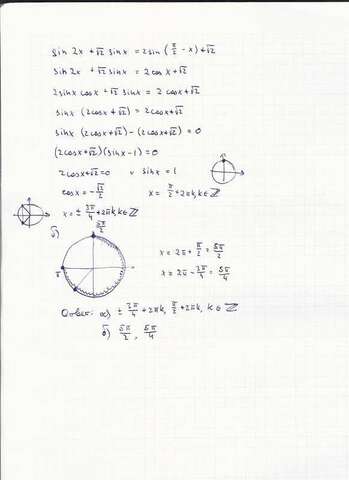 sin 2x + √2 sin x = 2 sin (π/2 - x) + √2
sin 2x + √2 sin x = 2 cos x + √2
2 sin x cos x + √2 sin x = 2 cos x + √2
sin x (2cos x + √2) = 2cos x + √2
sin x (2cos x + √2) - (2cos x + √2) = 0
(2cos x + √2)(sin x - 1) = 0
2cos x + √2 = 0 v sin x = 1
cos x = -√2/2 x = π/2 + 2πk, k ∈ Z
x = ± 3π/4 + 2πk, k ∈ Z
б) 5π/2
x = 2π + π/2 = 5π/2
π
x = 2π - 3π/4 = 5π/4
Ответ: а) ± 3π/4 + 2πk, π/2 + 2πk, k ∈ Z
б) 5π/2, 5π/4